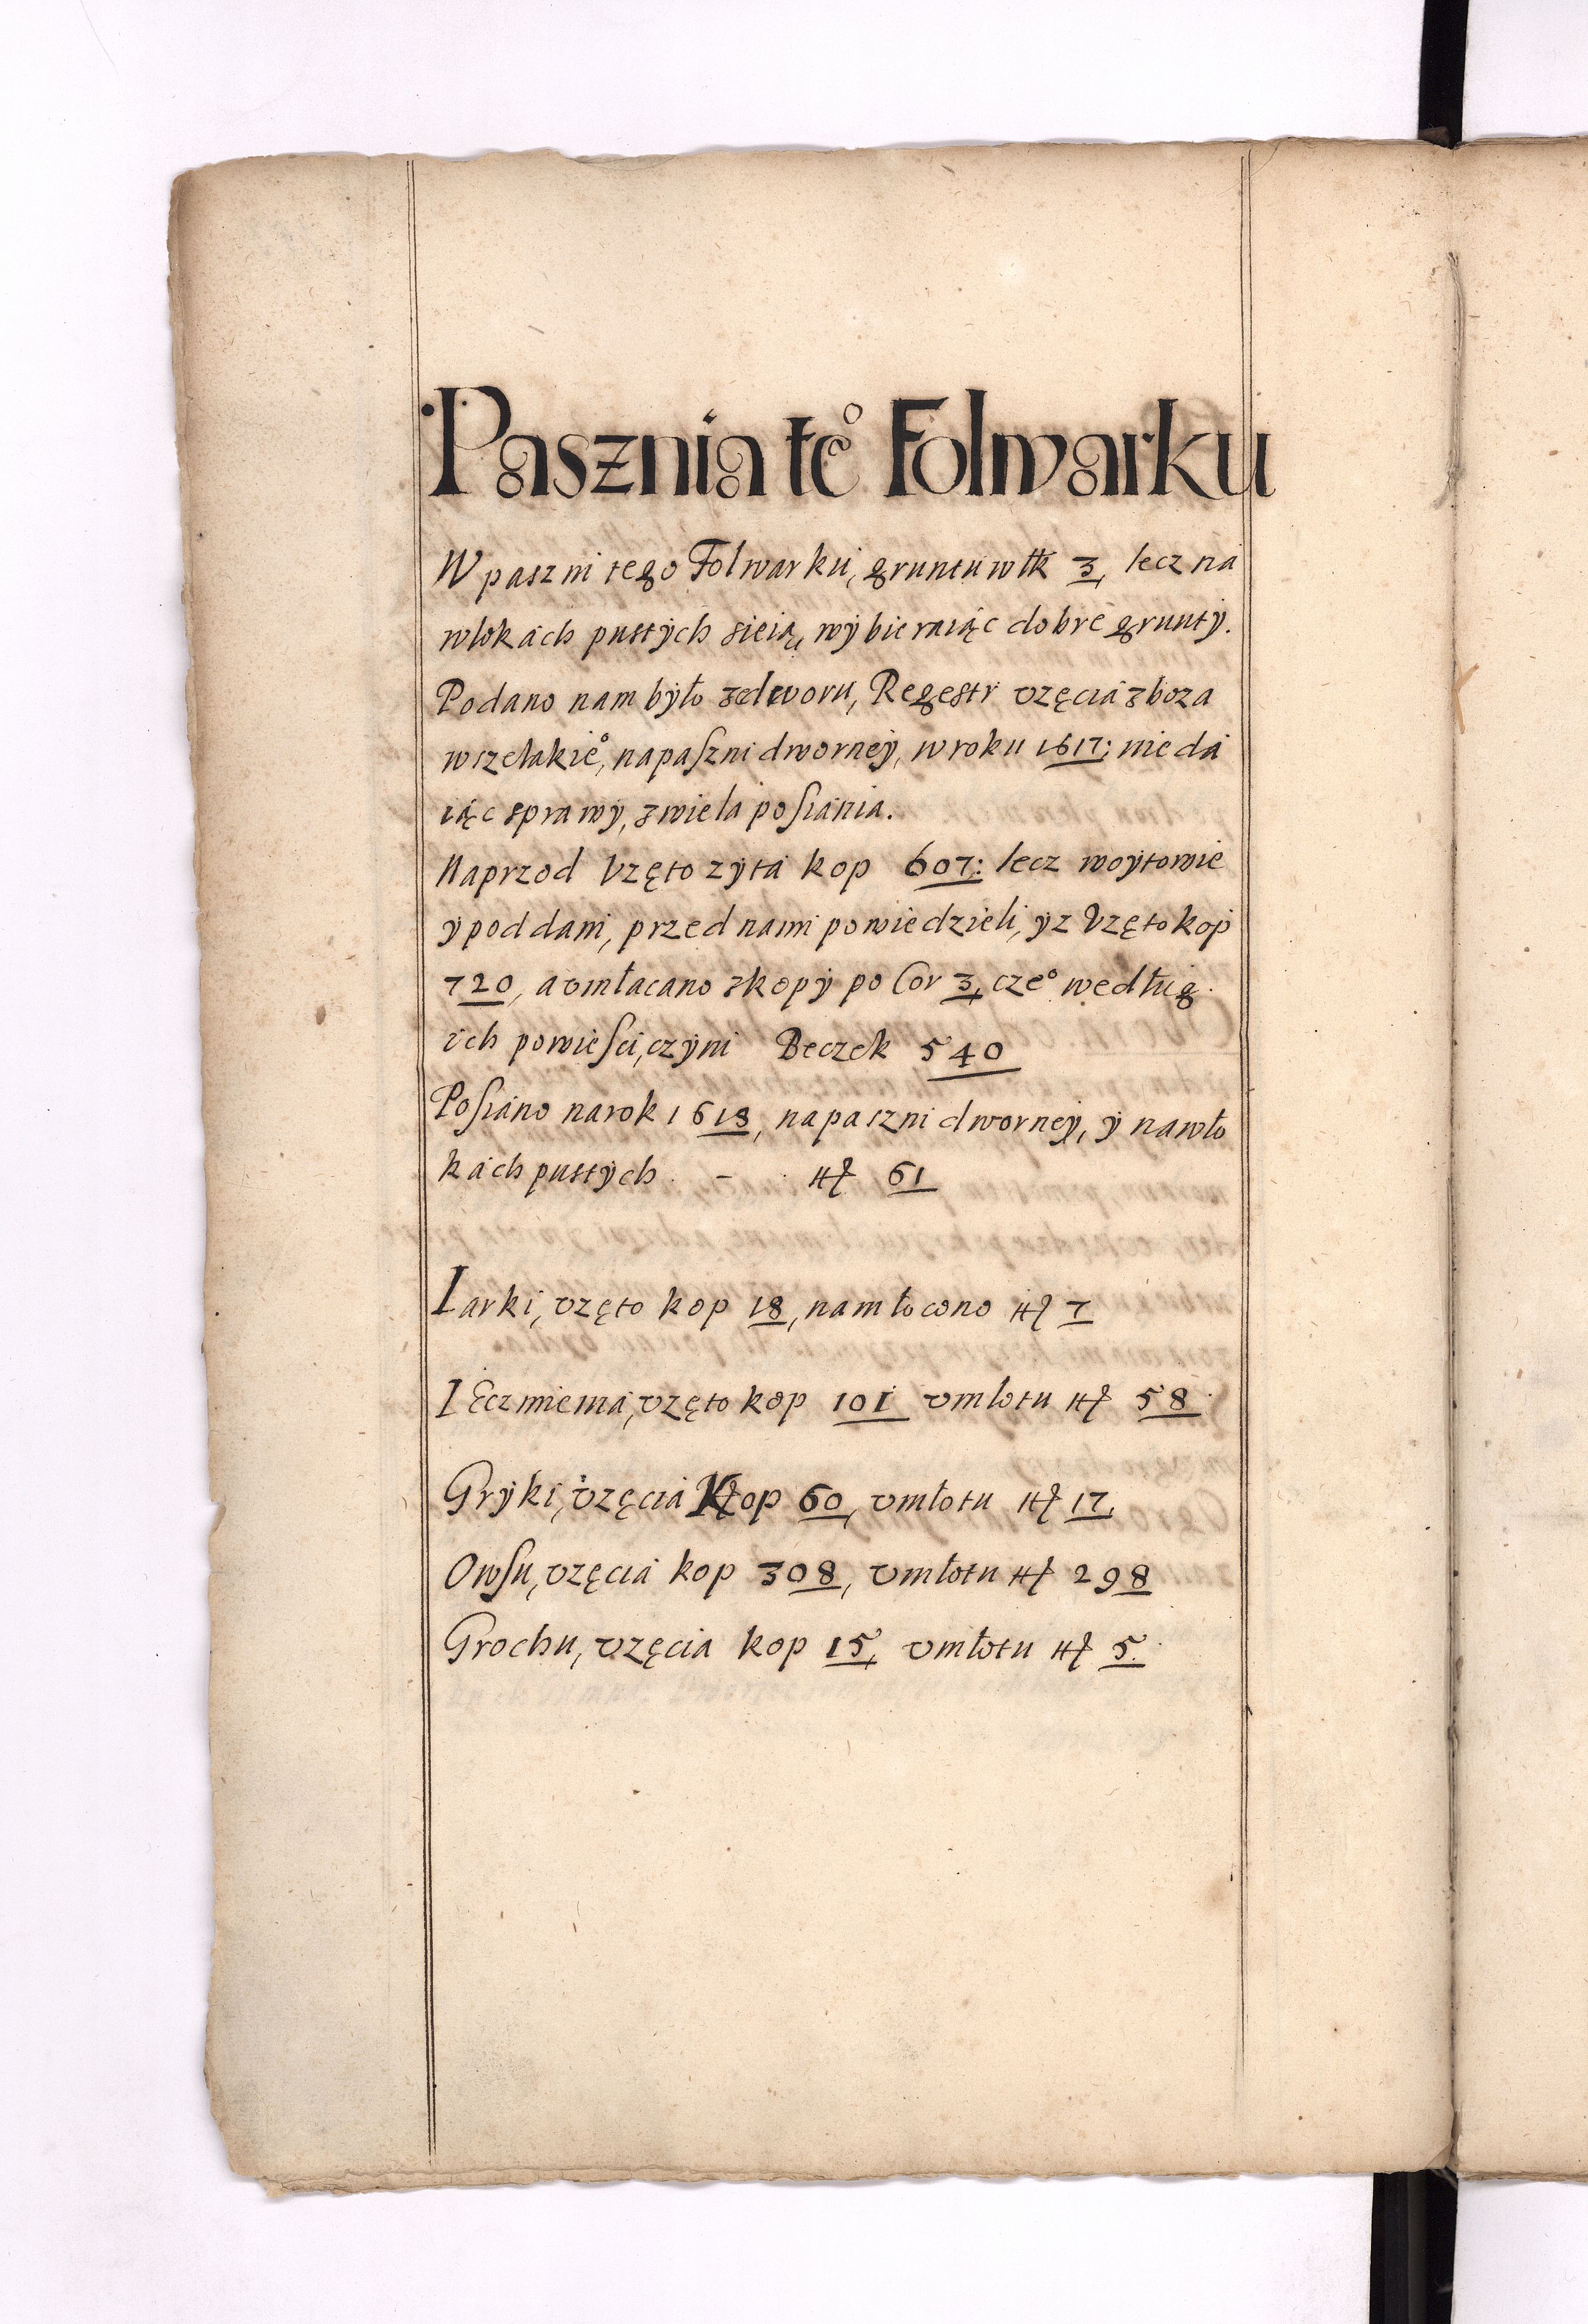 Pasznia te° Folwarku
W paszni tego Folwarku, gruntu włk 3, lecz na
włokách pustych sieią, wybieraiąc dobre grunty.
Podano nam było zedworu, Regestr vzęcia zboza
wszelakie°, napaszni dworney, w roku 1617: nie dá
iąc sprawy, zwiela posiánia.
Naprzod Vzęto zyta kop 607: lecz woytowie
y poddani, przed nami powiedzieli, yz Vzęto kop
720, a vmłacano zkopy po Cor 3, cze° według
ich powieści, czyni Beczek 540
Posiáno narok 1618, napaszni dworney, y nawło
kách pustych - 61
Iarki, vzęto kop 18, namłocono 7
IĘczmienia, vzęto kop 101 vmłotu 58
Gryki, vzęciá Kop 60, vmłotu 17
Owsu, vzęciá kop 308, vmłotu 298
Grochu, vzęcia kop 15, vmłotu 5